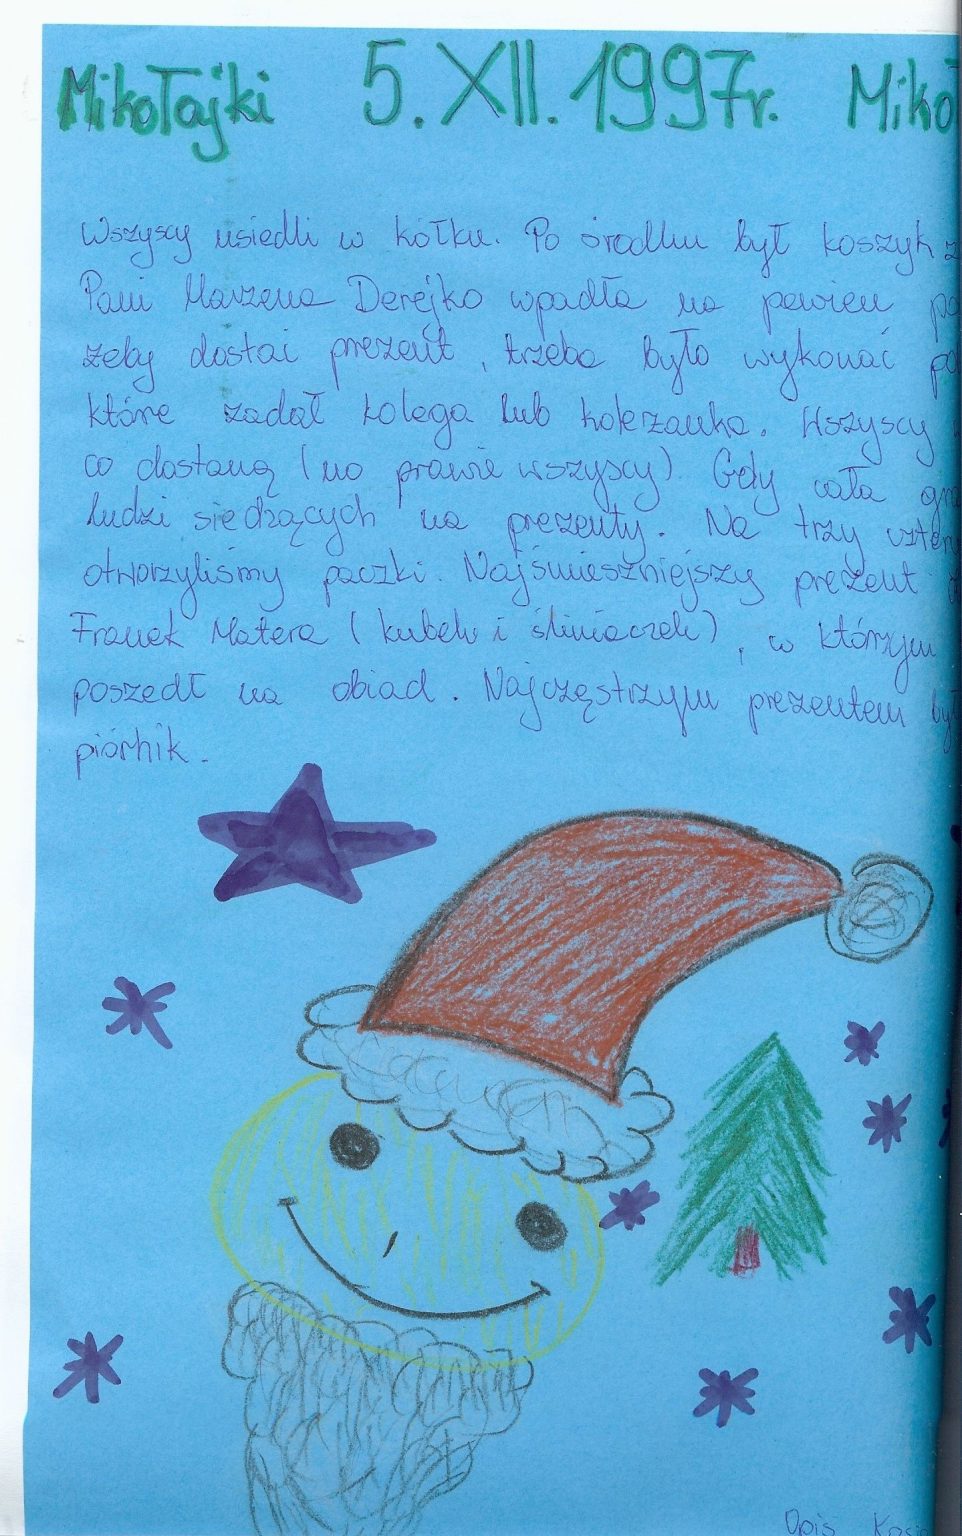 Mikołajki 5.XII.1997r. Miko
Wszyscy usiedli w kółku. Po środku był koszyk z
Pani Marzena Derejko wpadła na pewien
żeby dostać prezent, trzeba było wykonać
które zadał kolega lub koleżanka. Wszyscy
co dostaną (no prawie wszyscy). Gdy cała
ludzi siedzących na prezenty. Na trzy cztery
otworzyliśmy paczki. Najśmieszniejszy prezent
Franek Matera (kubek i śliniaczek), w którym
poszedł na obiad. Najczęstrzym prezentem był
piórnik.
Opis Kasi